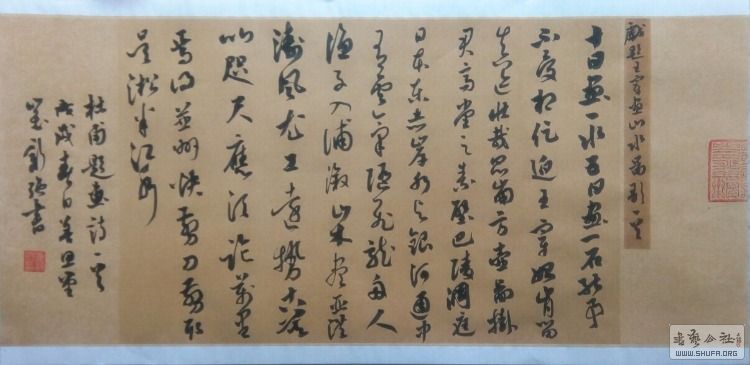 戲題王宰畫山水圖歌一首
十日畫一水五日畫一石能事
不受相促迫王宰始肯留
真迹壯哉昆侖方壺圖掛
君高堂之素壁巴陵洞庭
日本東赤岸水与銀河通中
有雲氣隨飛龍舟人
漁子入浦漵山木盡亞洪
濤風尤工遠勢古莫
比咫尺應須論萬里
焉得并州快剪刀剪取
吳淞半江水
杜甫題畫詩一首
戊戌春日
書
书艺公社
WWW.SHUFA.ORG